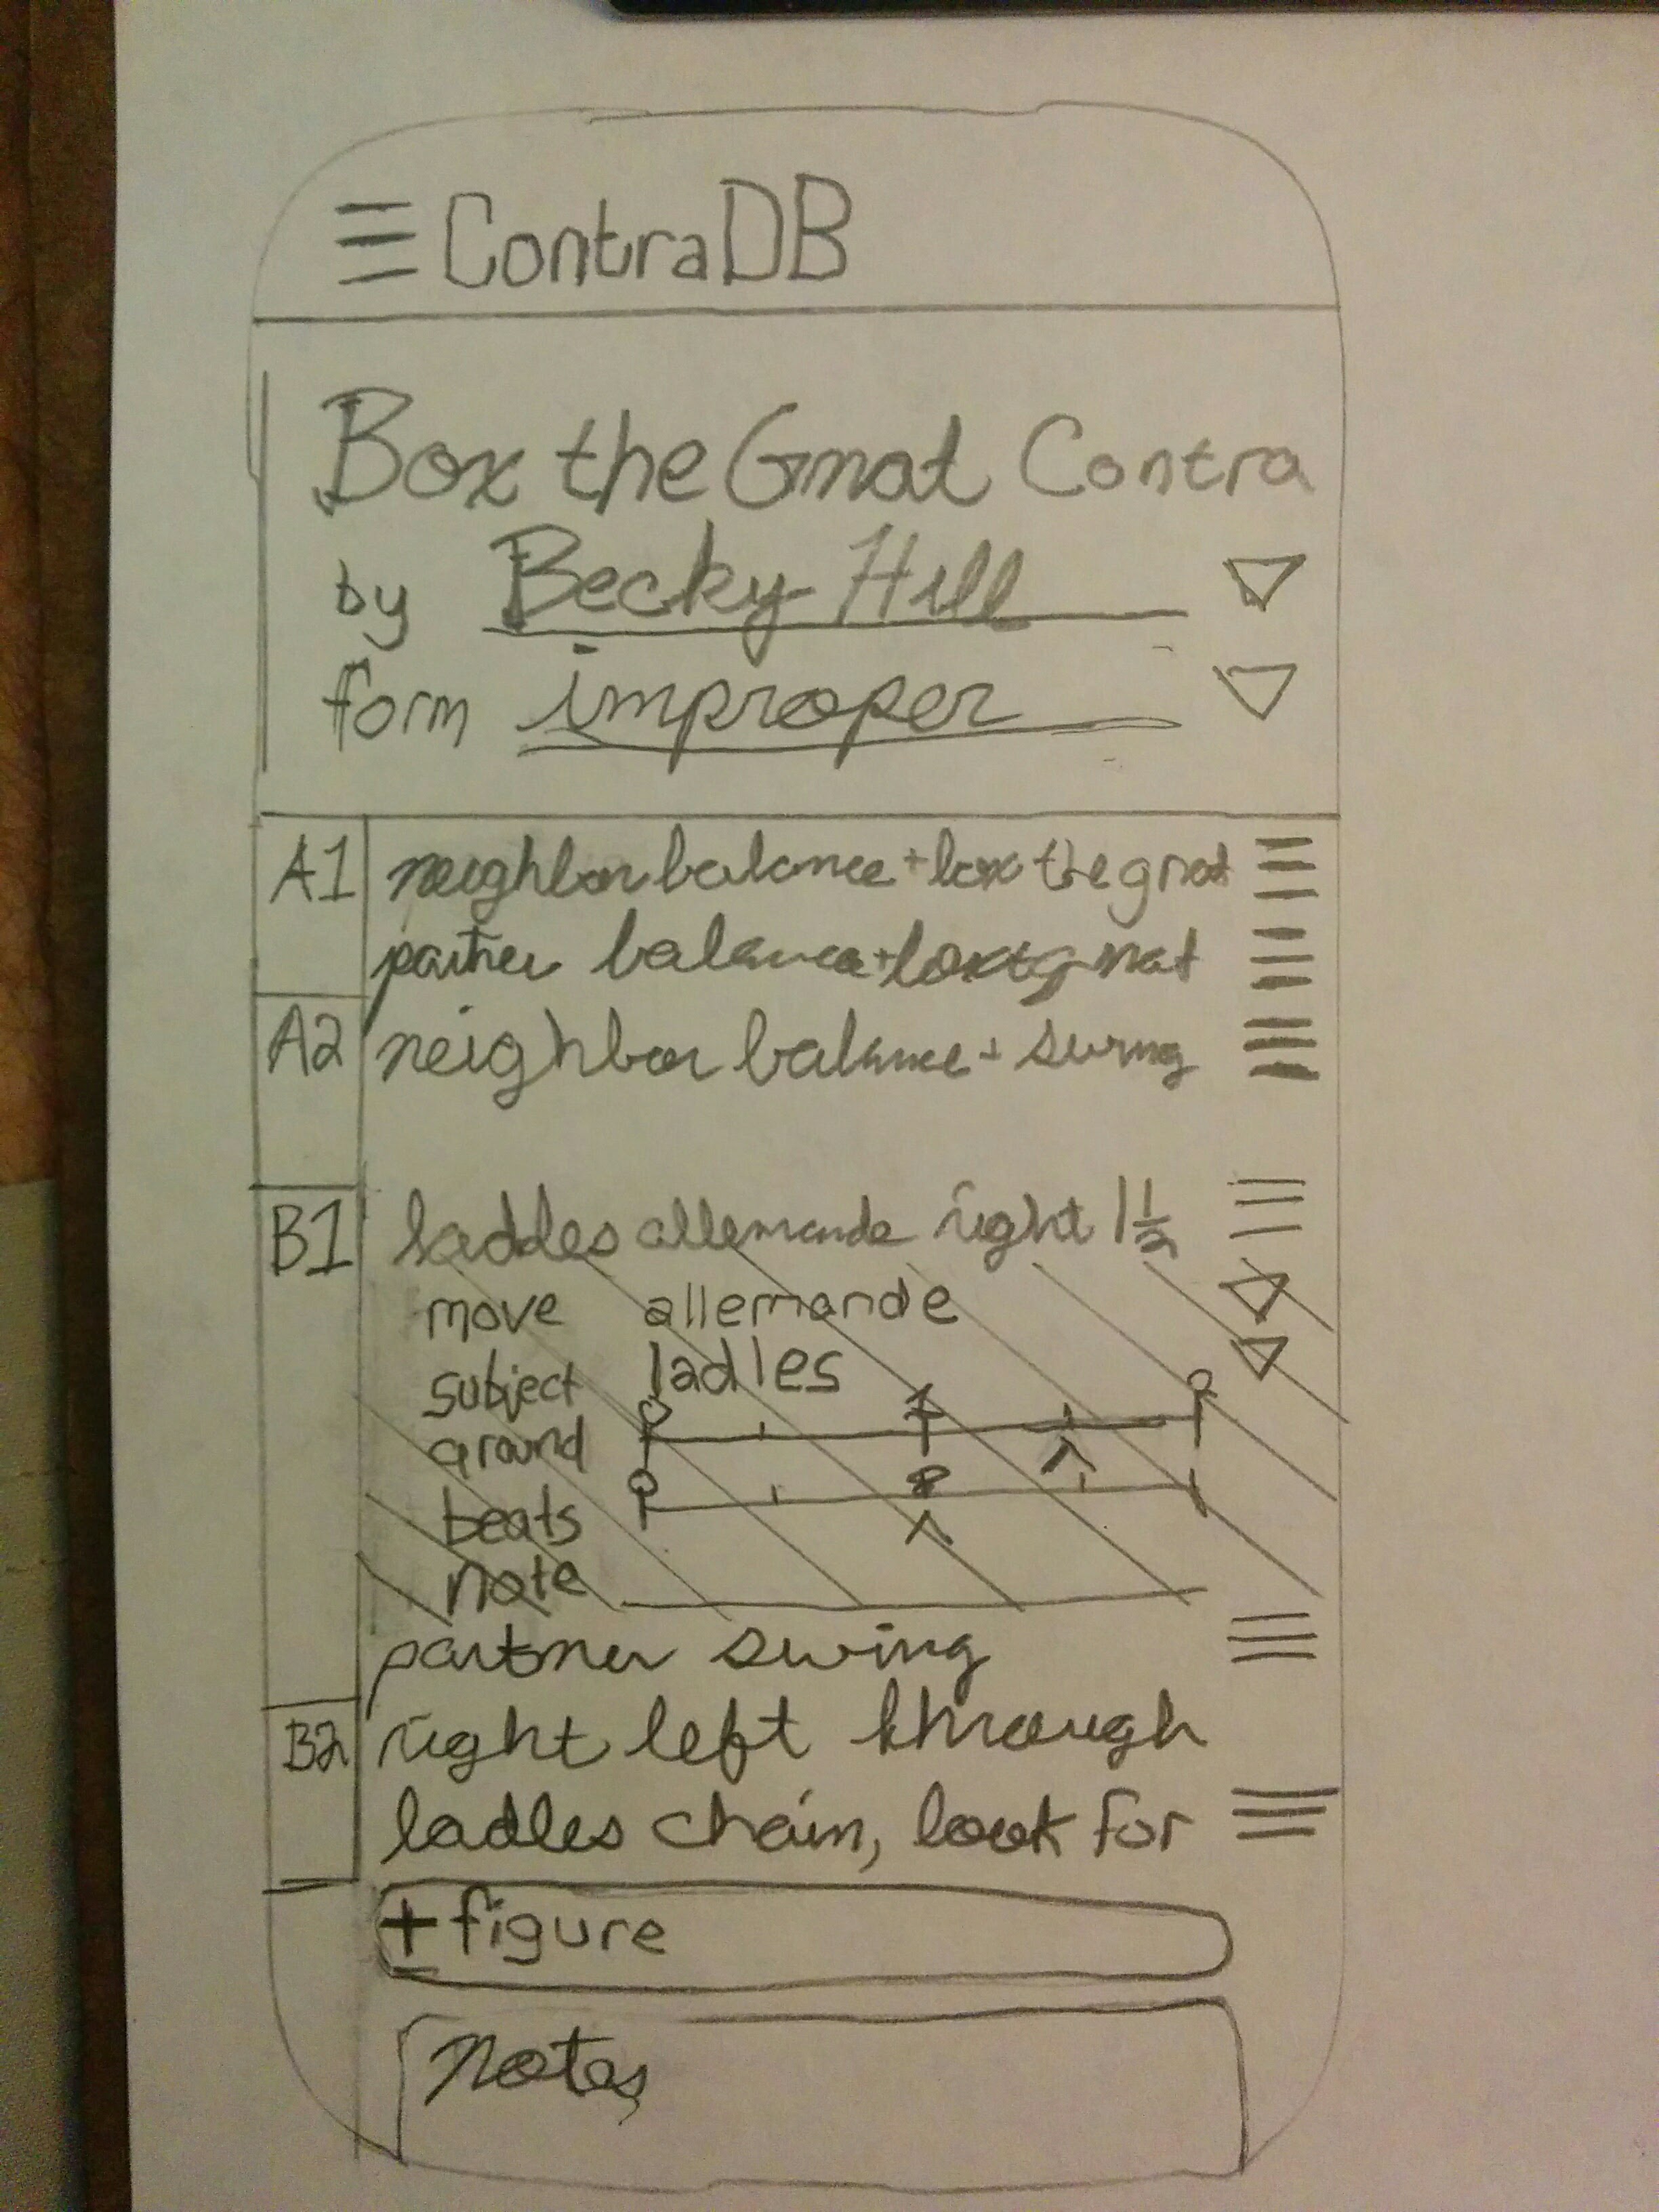 ContraDB
Box the Gnat Contra
by Becky Hill
form improper
A1 neighbor balance + box the gnat
partner balance + box t g nat
A2 neighbor balance + swing
B1 laddles allemande right 1 1/2
move allemande
subject ladles
around
beats
note
partner swing
B2 right left through
ladles chain, look for
+ figure
notes